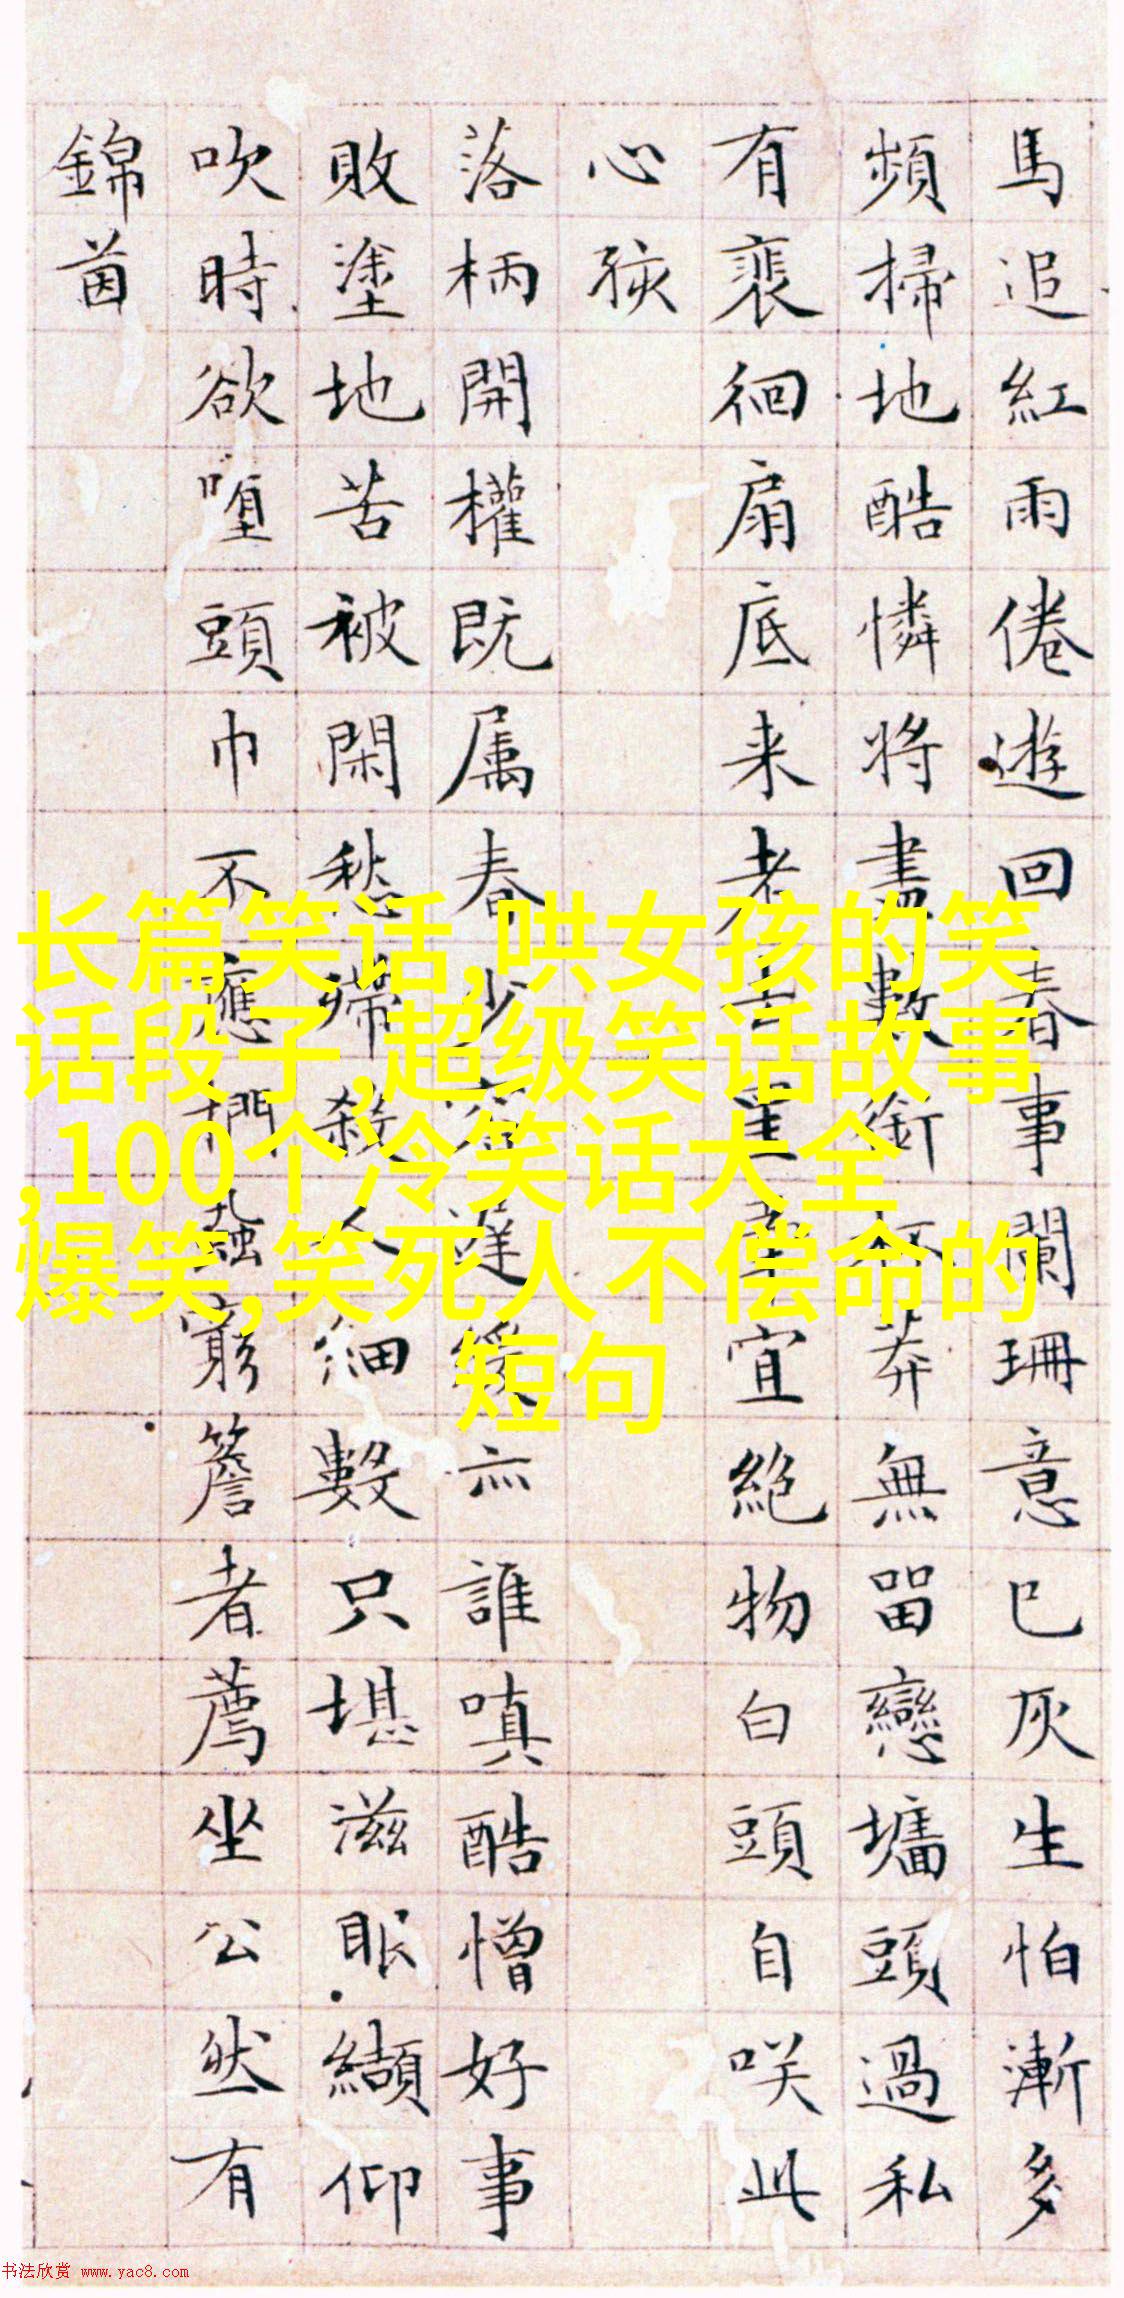 馬追紅雨倦遊回春事闌珊意已灰生怕漸多
頻掃地酷憐將盡數銜杯莽無留戀墻頭過私
有裵徊扇底来老去罣牽宜絕物白頭自咲此
心孩
落柄開權既属春少容遲緩亦誰嗔酷憎好事
敗塗地苦被閑愁殢殺人細數只堪滋眼纈仰
吹時欲墮頭巾不應捫蝨窮簷者薦坐公然有
錦茵
长篇笑话,哄女孩的笑
话段子,超级笑话故事
,100个冷笑话大全
爆笑,笑死人不偿命的
短句
书法欣赏 www.yac8.com